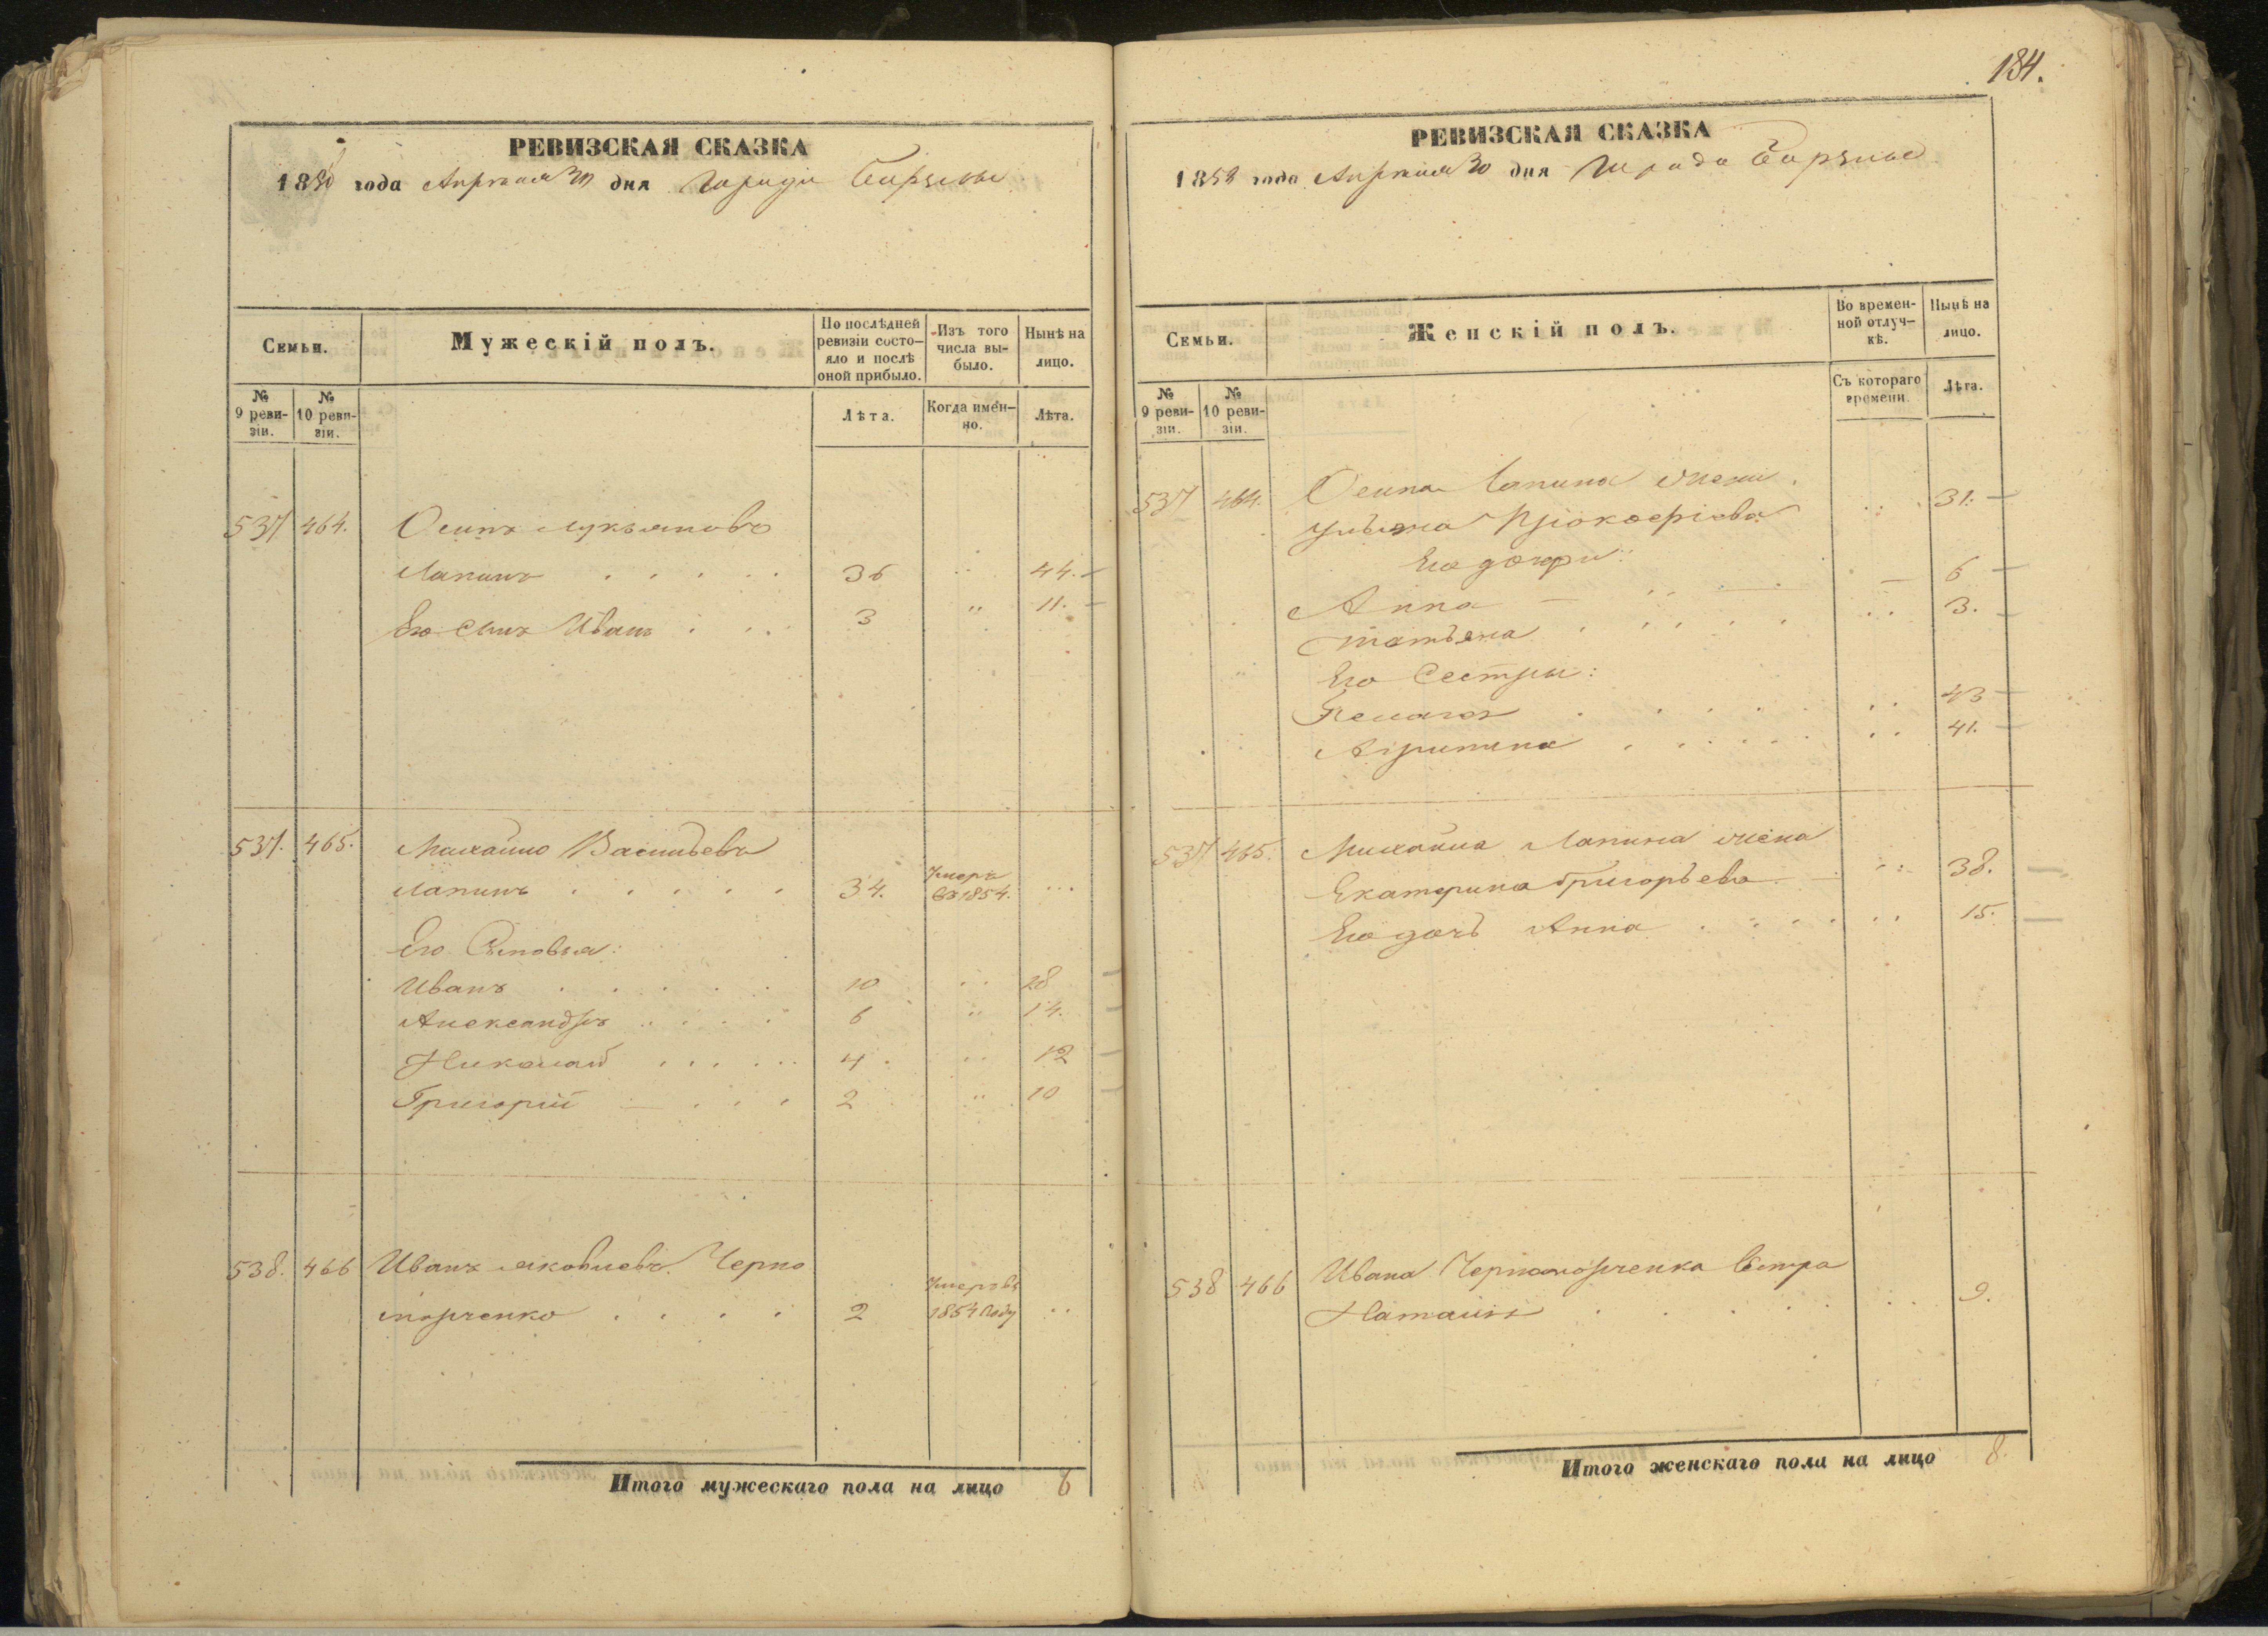 РЕВИЗСКАЯ СКАЗКА
1858 года Апреля 30 дня Города Борзны
Семьи.
Мужескій полъ.
По послѣдней
ревизіи состо-
яло и послѣ
оной прибыло.
Изъ того
числа вы-
было.
Нынѣ на
лицо.
№
9 реви-
зіи.
№
10 реви-
зіи.
Лѣта.
Когда имен-
но.
Лѣта.
537 464. Осипъ Лукьяновъ
Лапинъ . . . . . 36 " 44.
Его Сынъ Иванъ . . . 3 " 11.
537. 465. Михайло Васильевъ
Лапинъ . . . . . 34. Умеръ
въ 1854. ...
Его Сыновья:
Иванъ . . . . . 10 " 28
Александръ . . . . 6 " 14.
Николай . . . . . 4 " 12
Григорій — . . . 2 " 10
538. 466 Иванъ Яковлевъ Черно
морченко . . . . 2 Умеръ въ
1854 году ..
Итого мужескаго пола на лицо 6
184.
РЕВИЗСКАЯ СКАЗКА
1858 года Апреля 30 дня Города Борзны
Семьи.
Женскій полъ.
Во времен-
ной отлуч-
кѣ.
Нынѣ на
лицо.
№
9 реви-
зіи.
№
10 реви-
зіи.
Съ котораго
времени.
Лѣта.
537 464. Осипа Лапина жена
Ульяна Прокофіева .. 31.
Его дочери:
Анна — 6
Татьяна . . . . . .. 3.
Его Сестры:
Пелагея . . . . . .. 43
Агрипина . . . . . .. 41.
537 465. Михайла Лапина жена
Екатерина Григорьева .. 38.
Его дочь Анна . . . . .. 15.
538 466 Ивана Черноморченка Сестра
Наталія . . . . . .. 9.
Итого женскаго пола на лицо 8